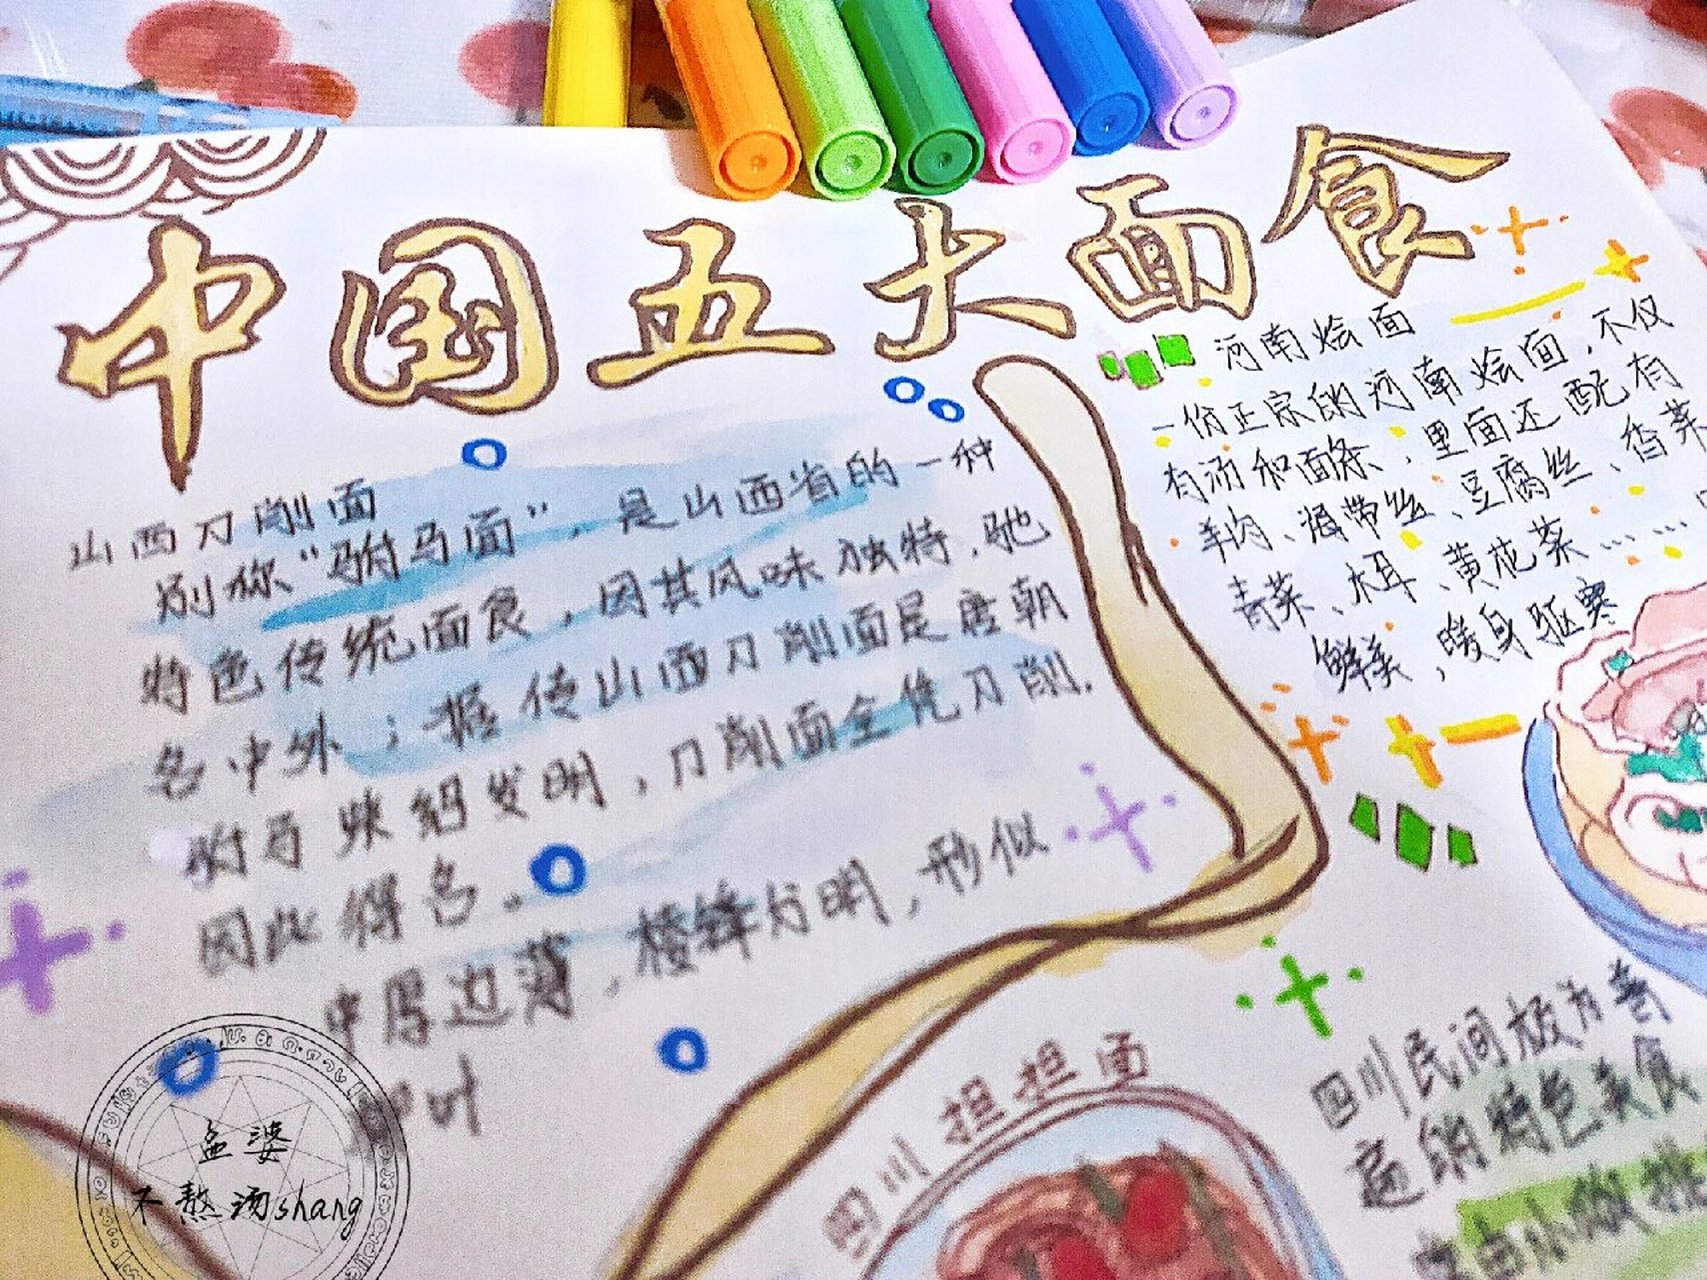 中国五大面食
山西刀削面
别称“驸马面”，是山西省的一种
特色传统面食，因其风味独特，驰
名中外；据传山西刀削面是唐朝
驸马柴绍发明，刀削面全凭刀削，
因此得名。
中厚边薄，棱锋分明，形似
柳叶
河南烩面
一份正宗的河南烩面，不仅
有汤和面条，里面还配有
羊肉、海带丝、豆腐丝、香菜
青菜、木耳、黄花菜……
鲜美，暖身驱寒
四川担担面
四川民间极为普
遍的特色美食
孟婆
不熬汤shang